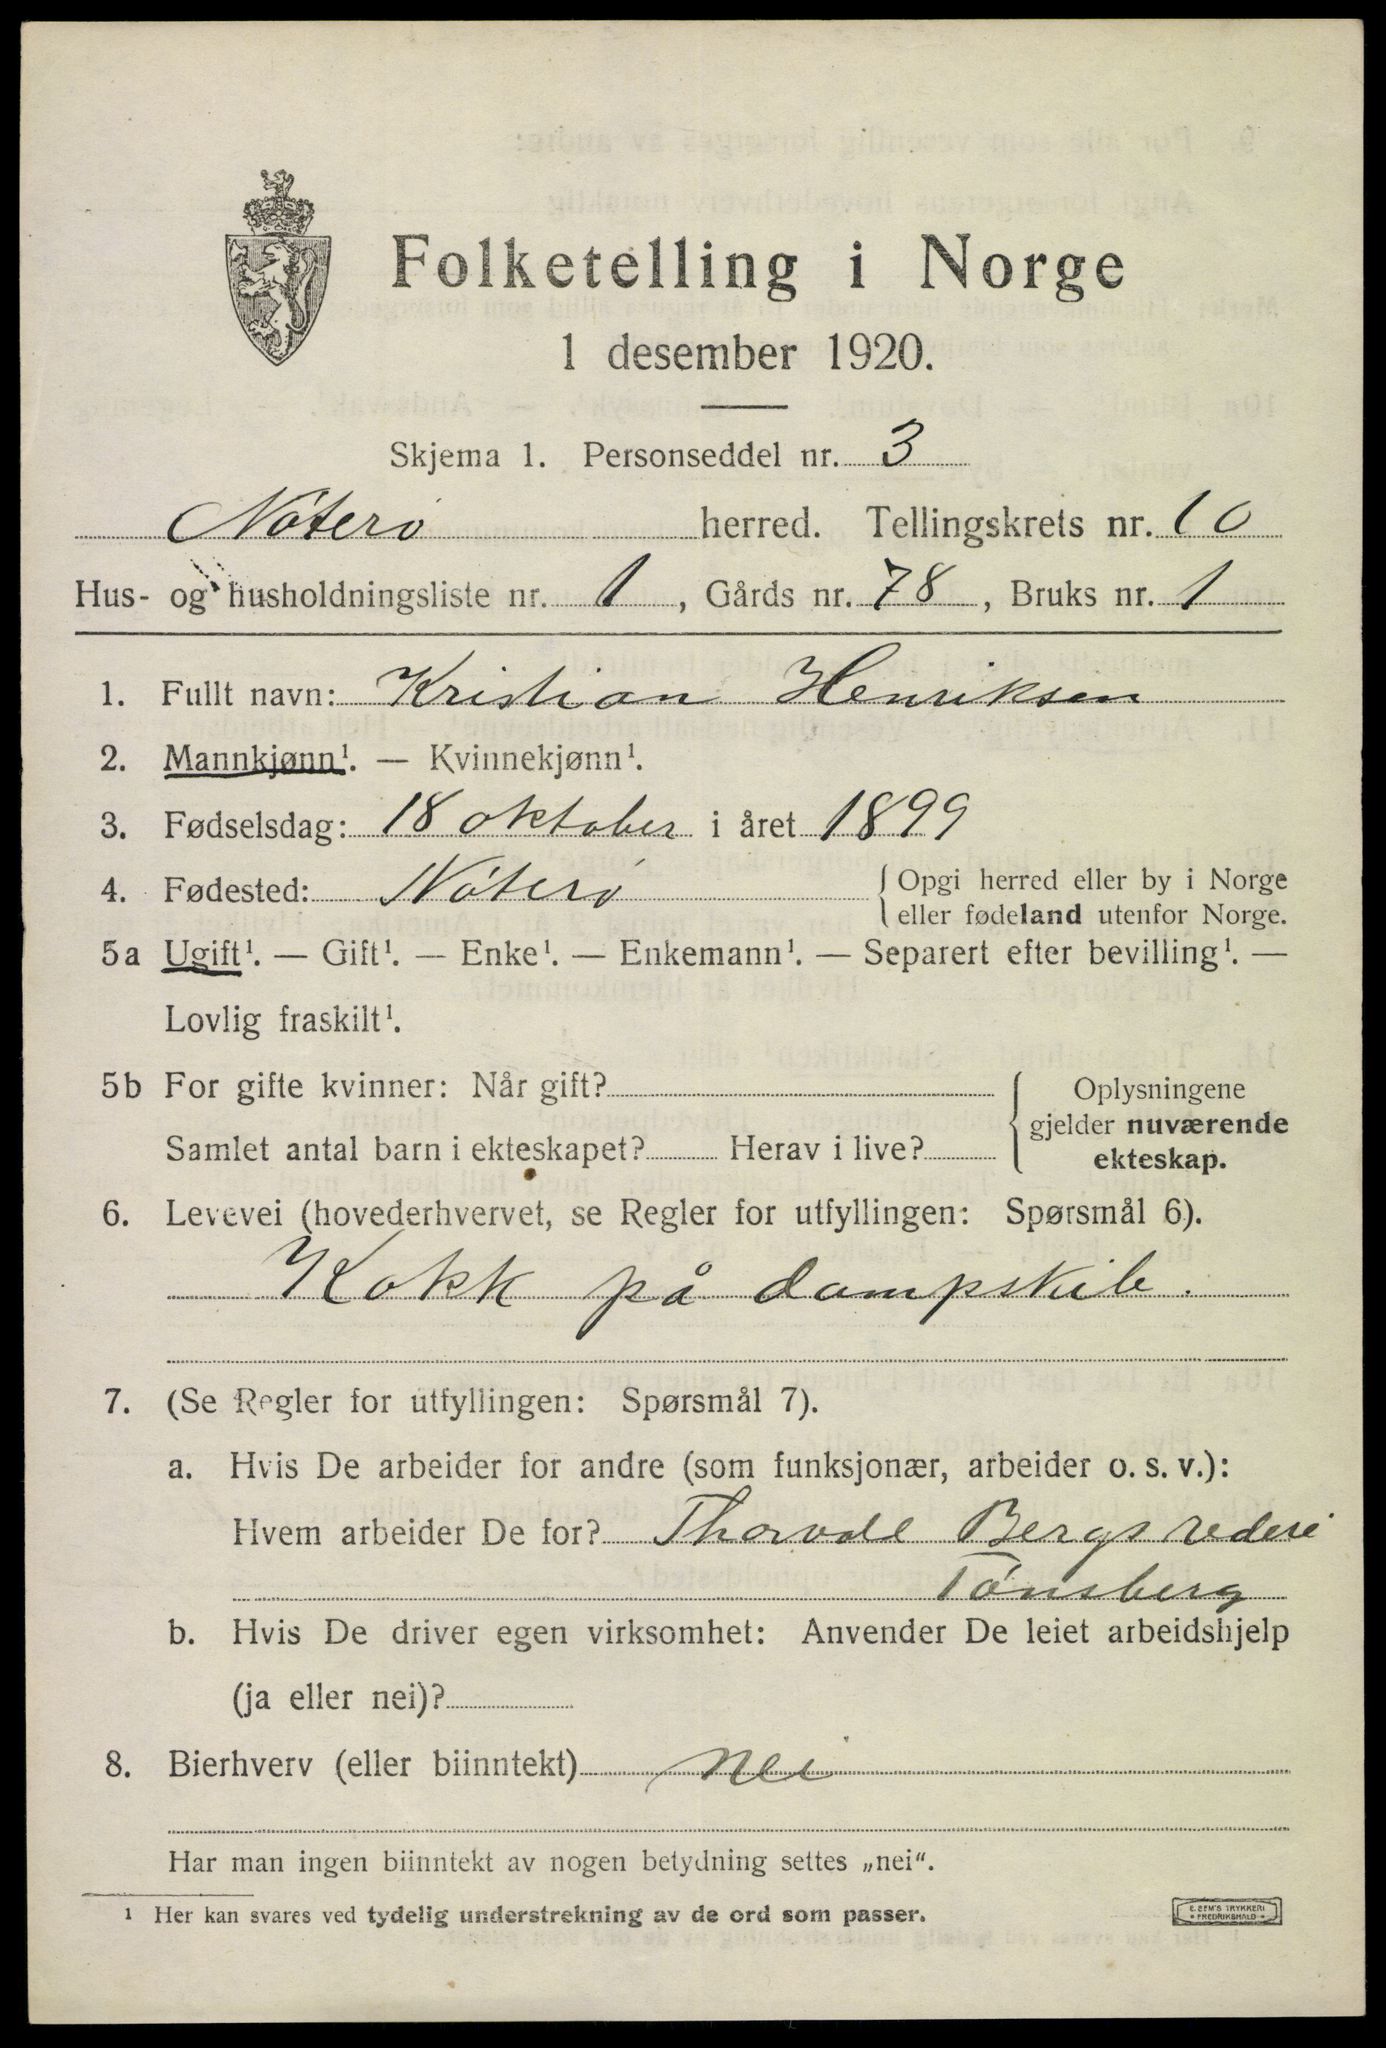 Folketelling i Norge
1 desember 1920.
Skjema 1. Personseddel nr. 3
Nøterø herred. Tellingskrets nr. 10
Hus- og husholdningsliste nr. 1, Gårds nr. 78, Bruks nr. 1
1. Fullt navn: Kristian Henriksen
2. Mannkjønn¹. — Kvinnekjønn¹.
3. Fødselsdag: 18 oktober i året 1899
4. Fødested: Nøterø { Opgi herred eller by i Norge
eller fødeland utenfor Norge.
5a Ugift¹. — Gift¹. — Enke¹. — Enkemann¹. — Separert efter bevilling¹. —
Lovlig fraskilt¹.
5b For gifte kvinner: Når gift?
Samlet antal barn i ekteskapet? Herav i live?
Oplysningene
gjelder nuværende
ekteskap.
6. Levevei (hovederhvervet, se Regler for utfyllingen: Spørsmål 6).
Kokk på dampskib.
7. (Se Regler for utfyllingen: Spørsmål 7).
a. Hvis De arbeider for andre (som funksjonær, arbeider o. s. v.):
Hvem arbeider De for? Thorvdl Bergs rederi
Tønsberg
b. Hvis De driver egen virksomhet: Anvender De leiet arbeidshjelp
(ja eller nei)?
8. Bierhverv (eller biinntekt) nei
Har man ingen biinntekt av nogen betydning settes „nei“.
¹ Her kan svares ved tydelig understrekning av de ord som passer.
E. SEM'S TRYKKERI
• FREDRIKSHALD •